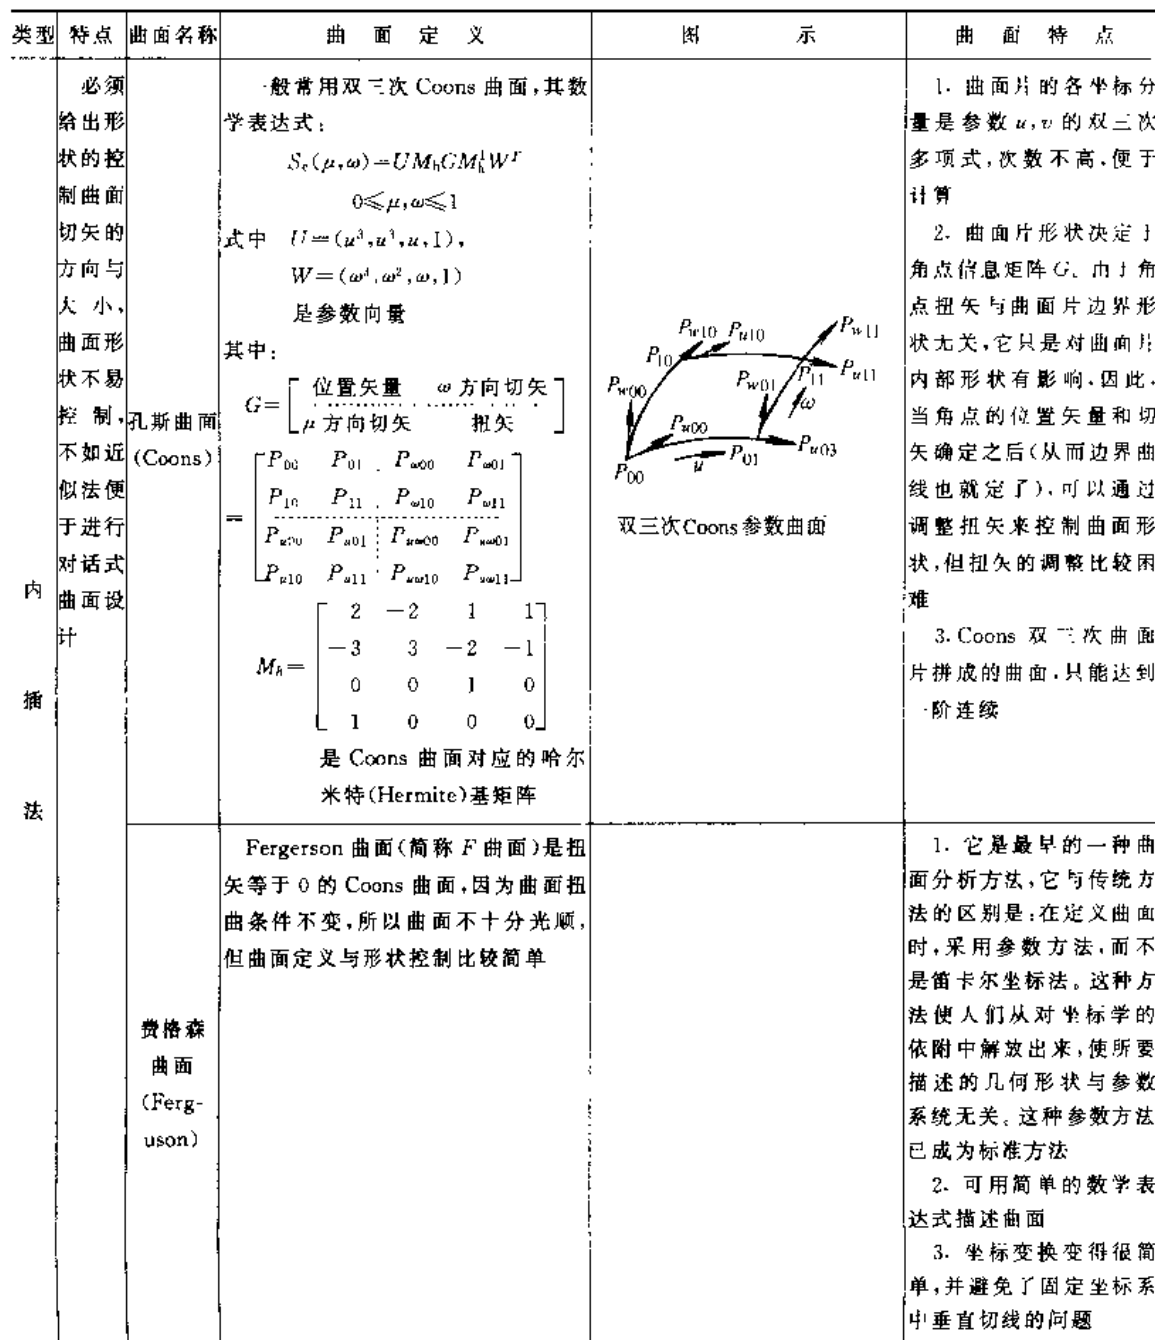 类型 特点 曲面名称 曲面定义 图示 曲面特点
内插法
必须
给出形
状的控
制曲面
切矢的
方向与
大小,
曲面形
状不易
控制,
不如近
似法便
于进行
对话式
曲面设
计
孔斯曲面
(Coons)
一般常用双三次 Coons 曲面,其数
学表达式:
S_c(μ,ω)=UM_hGM_h^tW^T
0≤μ,ω≤1
式中 U=(u³,u³,u,1),
W=(ω³,ω²,ω,1)
是参数向量
其中:
G=[位置矢量 ω方向切矢
μ方向切矢 扭矢]
=[P00 P01 Pω00 Pω01
P10 P11 Pω10 Pω11
Pu00 Pu01 Puω00 Puω01
Pu10 Pu11 Puω10 Puω11]
M_h=[2 −2 1 1
−3 3 −2 −1
0 0 1 0
1 0 0 0]
是 Coons 曲面对应的哈尔
米特(Hermite)基矩阵
Pw10 Pu10 Pw11
P10 P11 Pu11
Pw00 Pw01 ω
Pu00 Pu03
P00 u P01
双三次Coons参数曲面
1. 曲面片的各坐标分
量是参数 u,v 的双三次
多项式,次数不高,便于
计算
2. 曲面片形状决定于
角点信息矩阵 G。由于角
点扭矢与曲面片边界形
状无关,它只是对曲面片
内部形状有影响,因此,
当角点的位置矢量和切
矢确定之后(从而边界曲
线也就定了),可以通过
调整扭矢来控制曲面形
状,但扭矢的调整比较困
难
3. Coons 双三次曲面
片拼成的曲面,只能达到
一阶连续
费格森
曲面
(Ferg-
uson)
Fergerson 曲面(简称 F 曲面)是扭
矢等于 0 的 Coons 曲面,因为曲面扭
曲条件不变,所以曲面不十分光顺,
但曲面定义与形状控制比较简单
1. 它是最早的一种曲
面分析方法,它与传统方
法的区别是:在定义曲面
时,采用参数方法,而不
是笛卡尔坐标法。这种方
法使人们从对坐标学的
依附中解放出来,使所要
描述的几何形状与参数
系统无关。这种参数方法
已成为标准方法
2. 可用简单的数学表
达式描述曲面
3. 坐标变换变得很简
单,并避免了固定坐标系
中垂直切线的问题